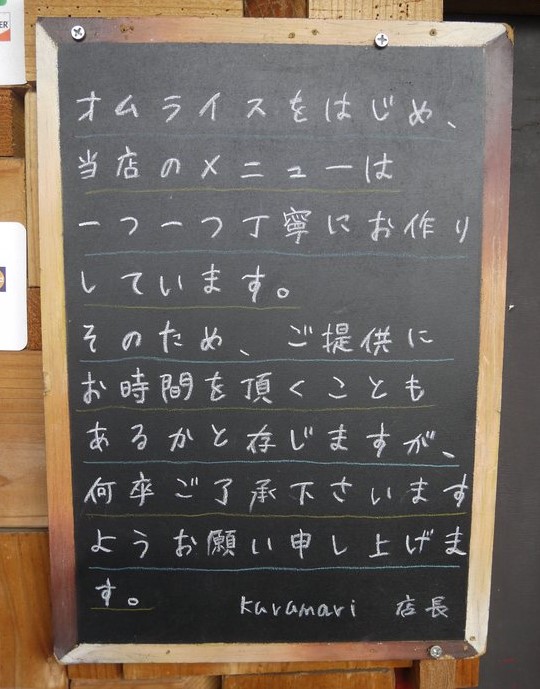 オムライスをはじめ、
当店のメニューは
一つ一つ丁寧にお作り
しています。
そのため、ご提供に
お時間を頂くことも
あるかと存じますが、
何卒ご了承下さいます
ようお願い申し上げま
す。
Kuramari 店長